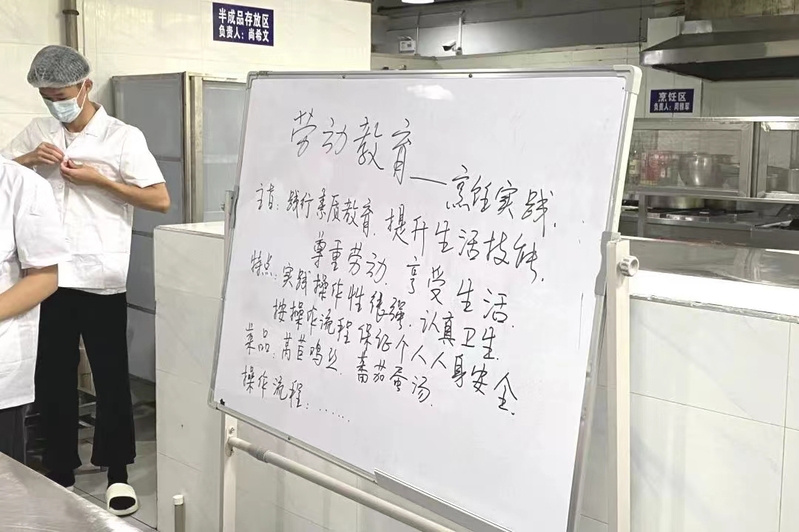 半成品存放区
负责人：尚希文
烹饪区
劳动教育
——烹饪实践.
主旨：践行素质教育，提升生活技能，
尊重劳动，享受生活.
特点：实践操作性很强，认真卫生.
按操作流程保证个人人身安全.
菜品：莴苣鸡丝 番茄蛋汤.
操作流程：……